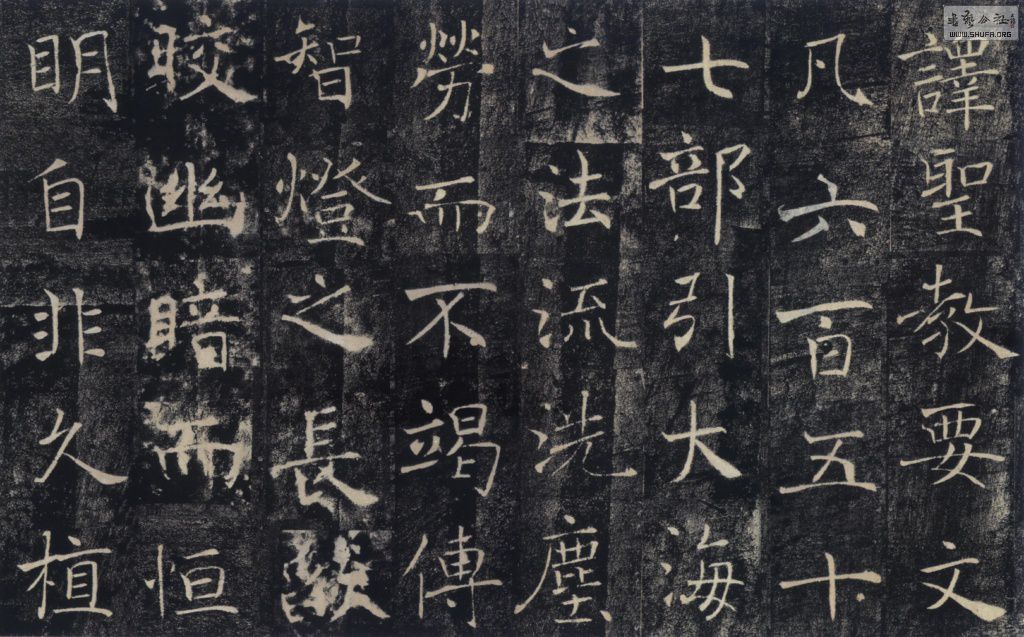 譯聖教要文
凡六百五十
七部引大海
之法流洗塵
勞而不竭傳
智燈之長燄
晈幽暗而恒
明自非久植
WWW.SHUFA.ORG